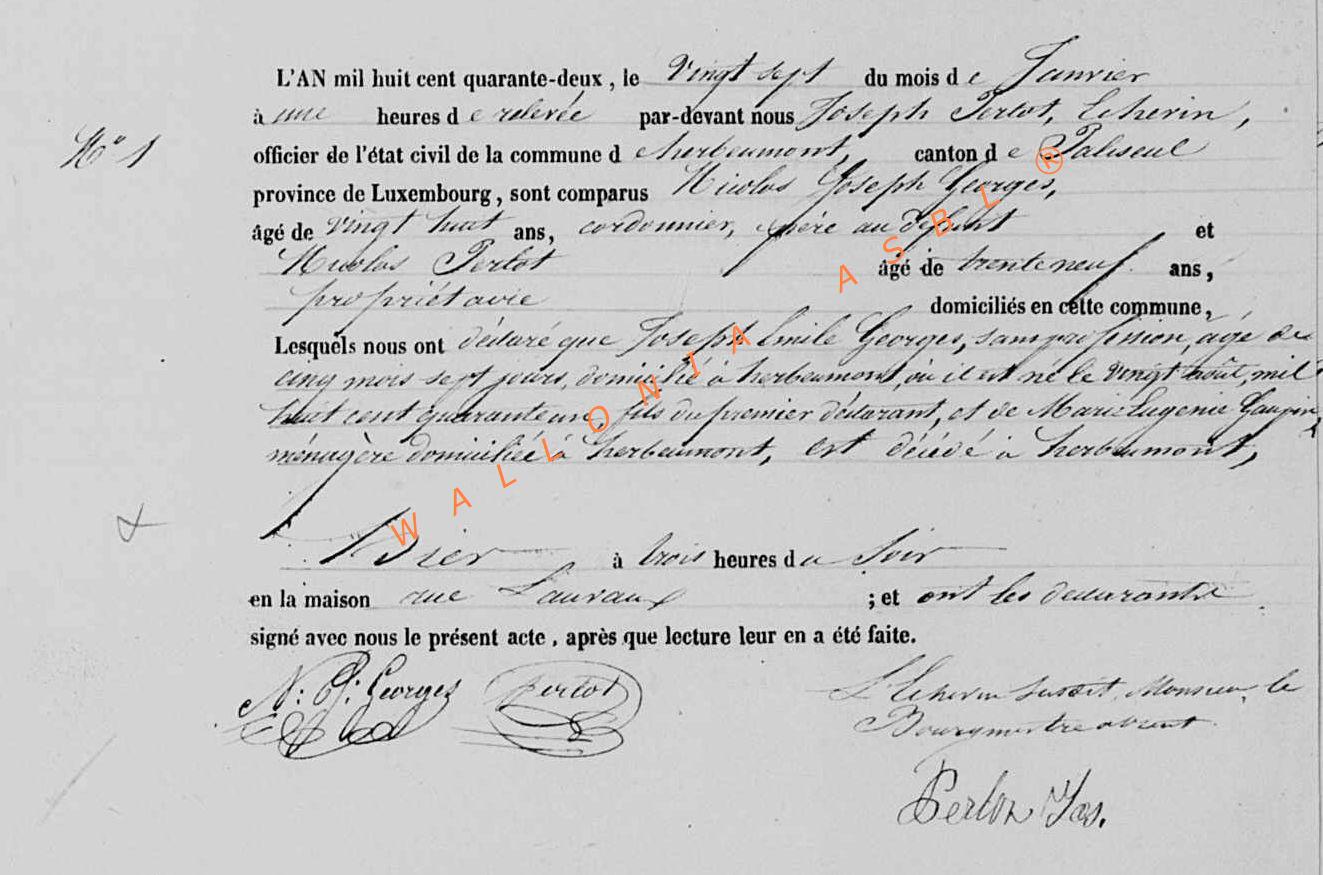 L'AN mil huit cent quarante-deux, le vingt sept du mois de Janvier
à une heures de relevée par-devant nous Joseph Perlot, Echevin,
N° 1
officier de l'état civil de la commune d'herbeumont, canton de Paliseul
province de Luxembourg, sont comparus Nicolas Joseph Georges,
âgé de vingt huit ans, cordonnier, père au défunt et
Nicolas Perlot âgé de trente neuf ans,
propriétaire domiciliés en cette commune,
Lesquels nous ont déclaré que Joseph Emile Georges, sans profession, agé de
cinq mois sept jours, domicilié à herbeumont, où il est né le vingt août, mil
huit cent quarante un, fils du premier déclarant, et de Marie Eugenie
ménagère domiciliée à herbeumont, est décédé à herbeumont,
hier à trois heures du Soir
en la maison rue ; et ont les déclarants
signé avec nous le présent acte, après que lecture leur en a été faite.
N: J: Georges Perlot
L'Echevin susdit, Monsieur le
Bourgmestre absent
Perlot Jos.
WALLONIA ASBL ®